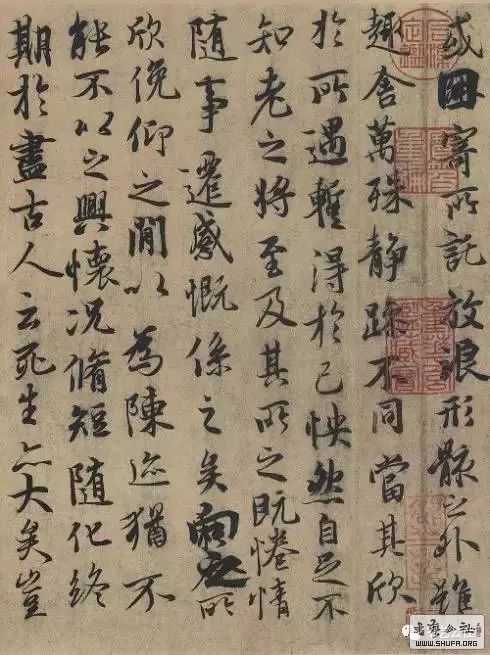 或因寄所託放浪形骸之外雖
趣舍萬殊静躁不同當其欣
於所遇暫得於己怏然自足不
知老之將至及其所之既惓情
随事遷感慨係之矣向之所
欣俛仰之閒以為陳迹猶不
能不以之興懷況脩短随化終
期於盡古人云死生亦大矣豈
书艺公社
WWW.SHUFA.ORG